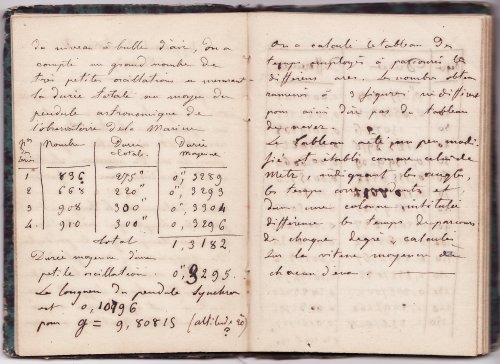 du niveau à bulle d'air, on a
compté un grand nombre de
très petites oscillations en mesurant
la durée totale au moyen du
pendule astronomique de
l'observatoire de la Marine
Nos Nombre Durée Durée
totale moyenne
1 836 275" 0",3289
2 668 220" 0,3293
3 908 300" 0,3304
4. 910 300" 0,3296
total 1,3182
Durée moyenne d'une
petite oscillation. 0",3295.
La longueur du pendule synchrone
est 0,10796
pour g = 9,80815 (altitude 20)
On a calculé le tableau des
temps employés à parcourir
différens arcs. Le nombre obtenu
ramenés à 3 figures ne diffèrent
pour ainsi dire pas du tableau
des
Le tableau a été par peu modi-
fié et établi comme celui de
Metz, indiquant les angles,
les temps et
dans une colonne intitulée
différence les temps de parcours
de chaque degré calculés
sur la vitesse moyenne de
chacun d'eux.